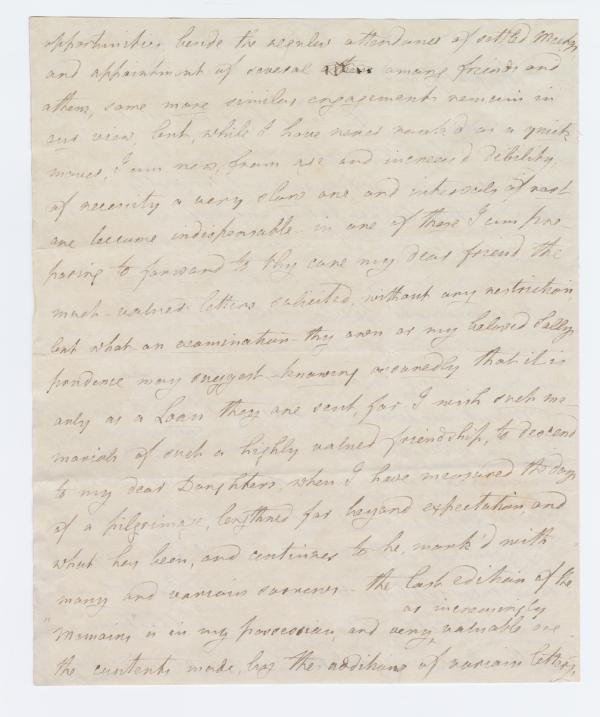 opportunities beside the regular attendance of settled Meetgs
and appointment of several among friends and
others, some more similar engagements remain in
our view, but, while I have never rank'd as a quick
mover, I am now, from age and increas'd debility,
of necessity a very slow one, and intervals of rest
are become indispensable - in one of these I am pro-
posing to forward to thy care my dear friend the
much-valued letters solicited, without any restriction
but what an examination thy own or my beloved Sally
prudence may suggest - knowing assuredly that it is
only as a Loan they are sent, for I wish such me-
morials of such a highly valued friendship, to descend
to my dear Daughters, when I have measured the days
of a pilgrimage, length'ned far beyond expectation, and
what has been, and continues to be, mark'd with
many and various sorrows - the last edition of the
as increasingly
"Remains is in my possession, and very valuable are
the contents made, by the additions of various letters,